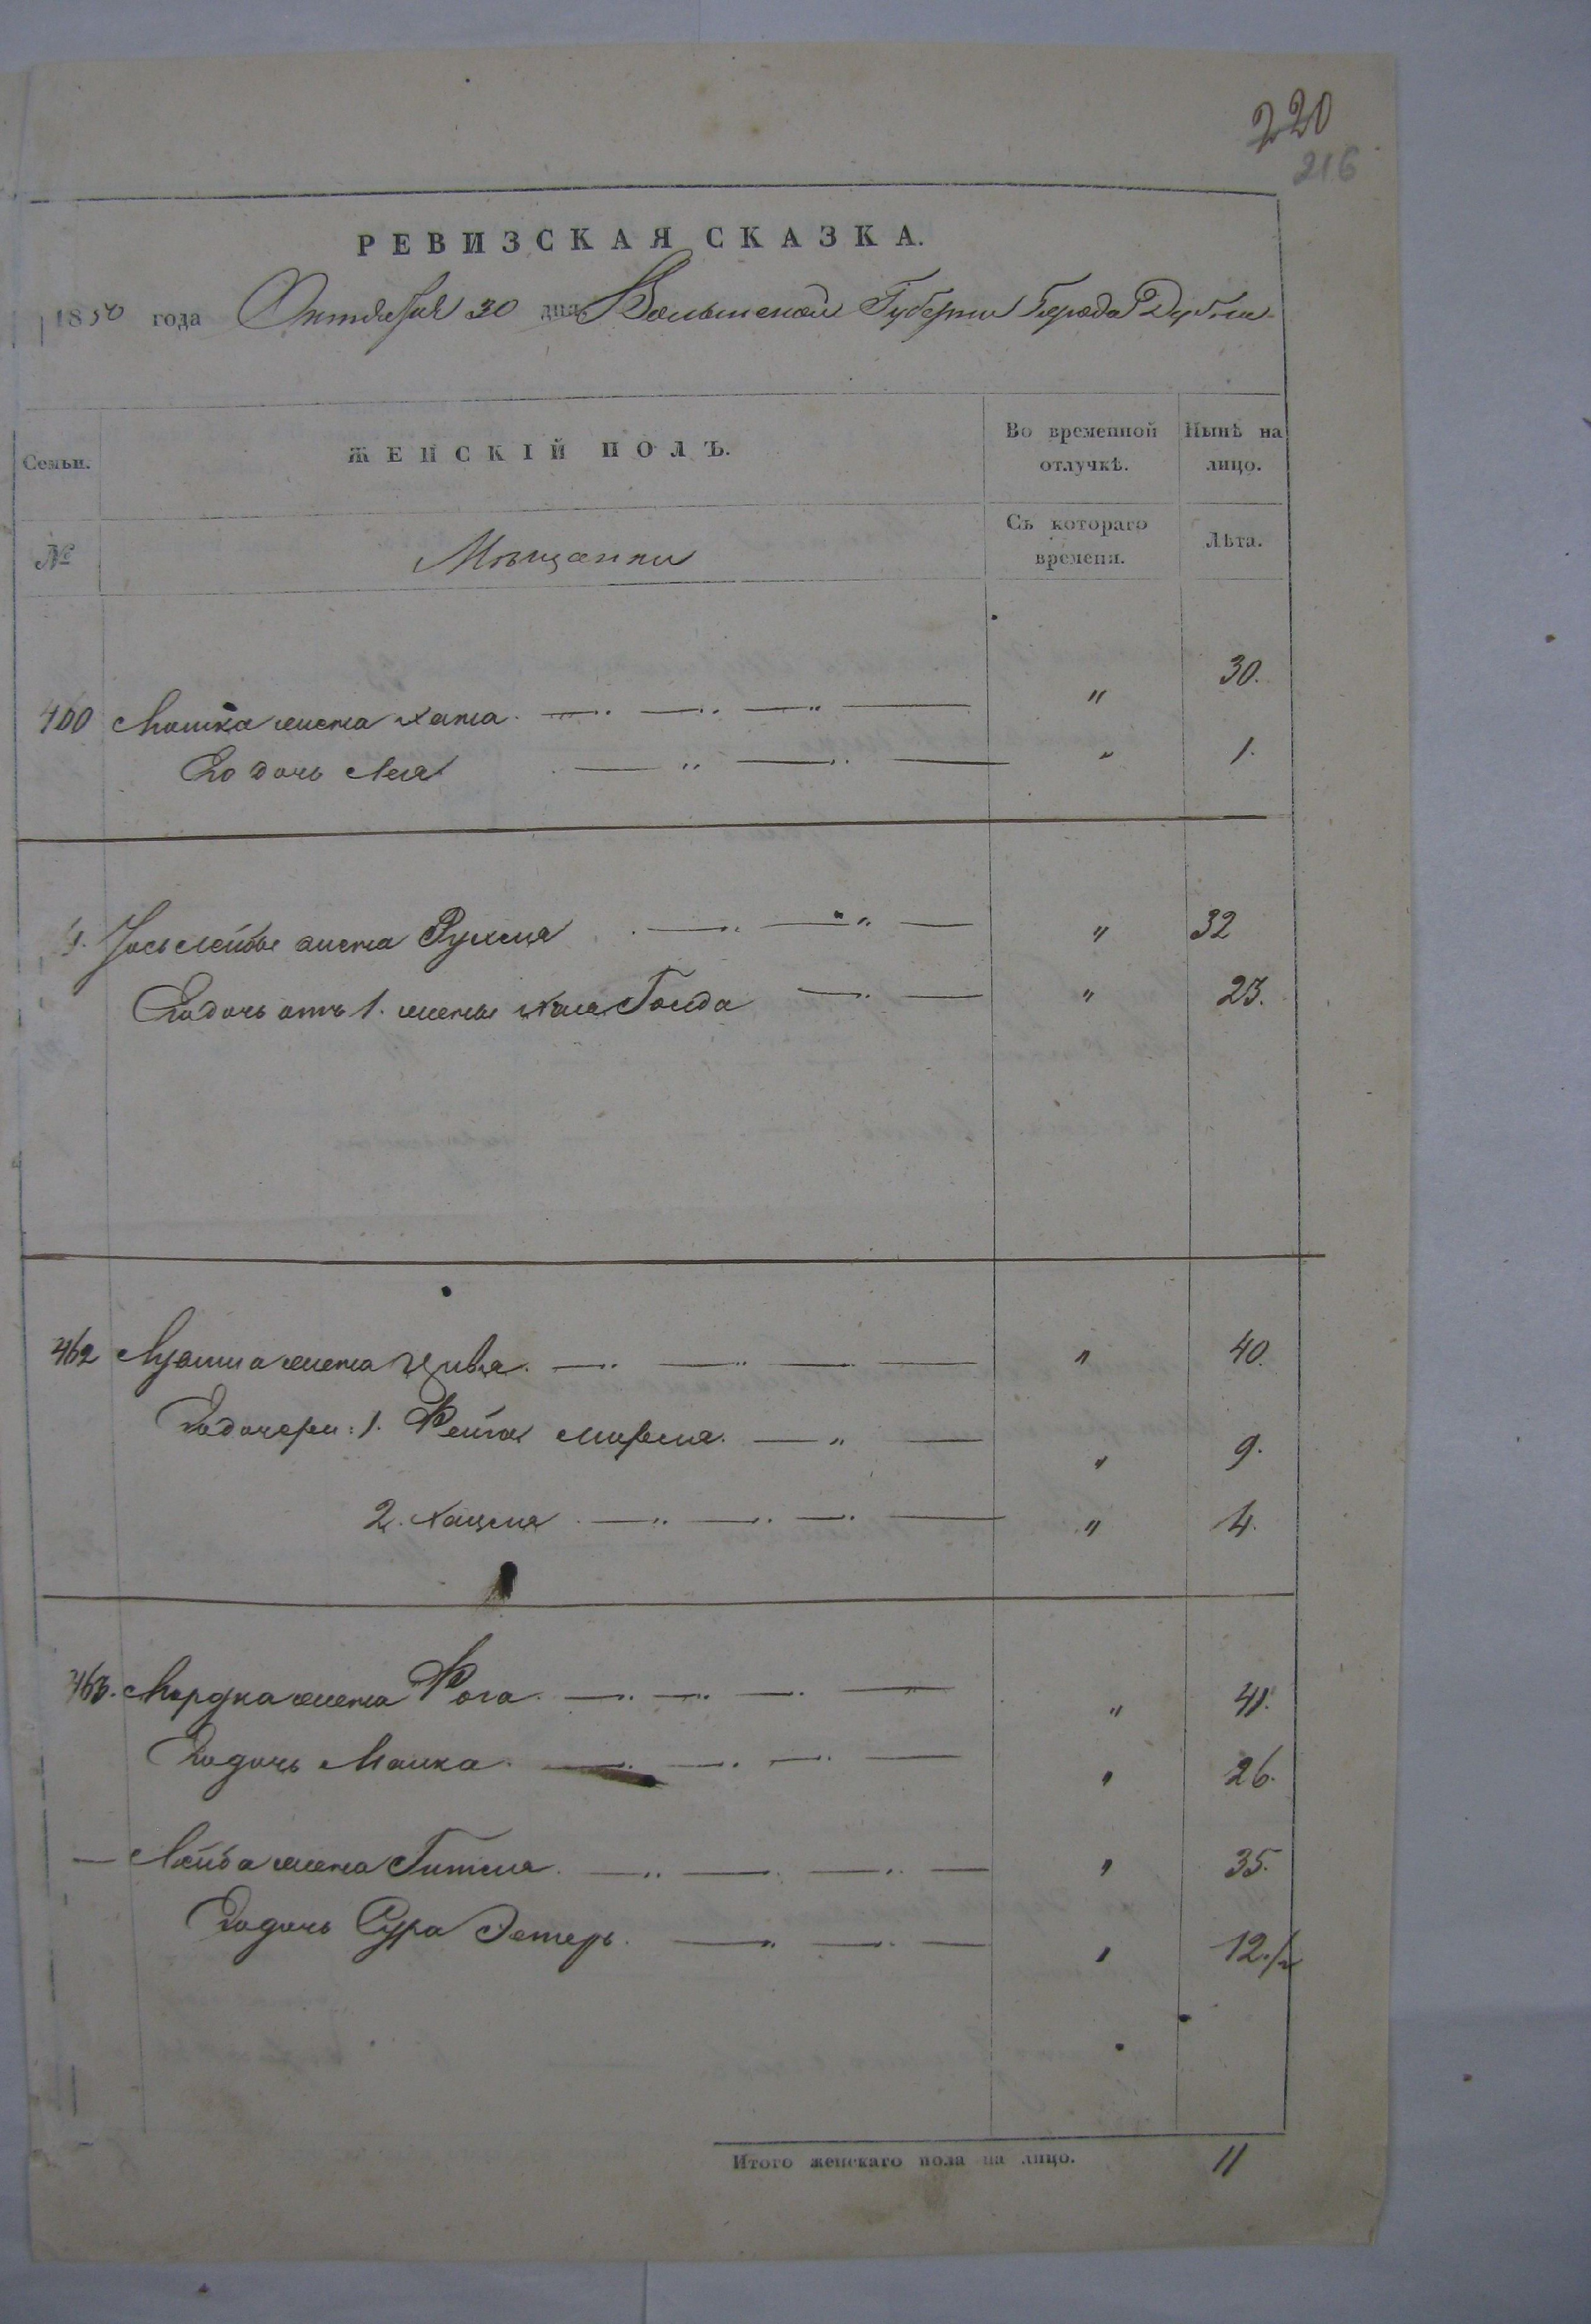 220
216
РЕВИЗСКАЯ СКАЗКА.
1850 года Октября 30 дня Волынской Губернии Города Дубна
Семьи. ЖЕНСКІЙ ПОЛЪ. Во временной отлучкѣ. Нынѣ на лицо.
№ Мѣщанки Съ котораго времени. Лѣта.
460 Мошка жена Хана " 30.
Его дочь Лея " 1.
Іось Лейбы жена Рухля " 32
Его дочь отъ 1. жены Хая Голда " 23.
462 жена Цивя " 40.
Его дочери: 1. Фейга Мирля " 9.
2. Хацля " 4.
463. Мордка жена " 41.
Его дочь Малка " 26.
Лейба жена Гитля " 35.
Его дочь Сура Эстеръ " 12 1/2
Итого женскаго пола на лицо. 11